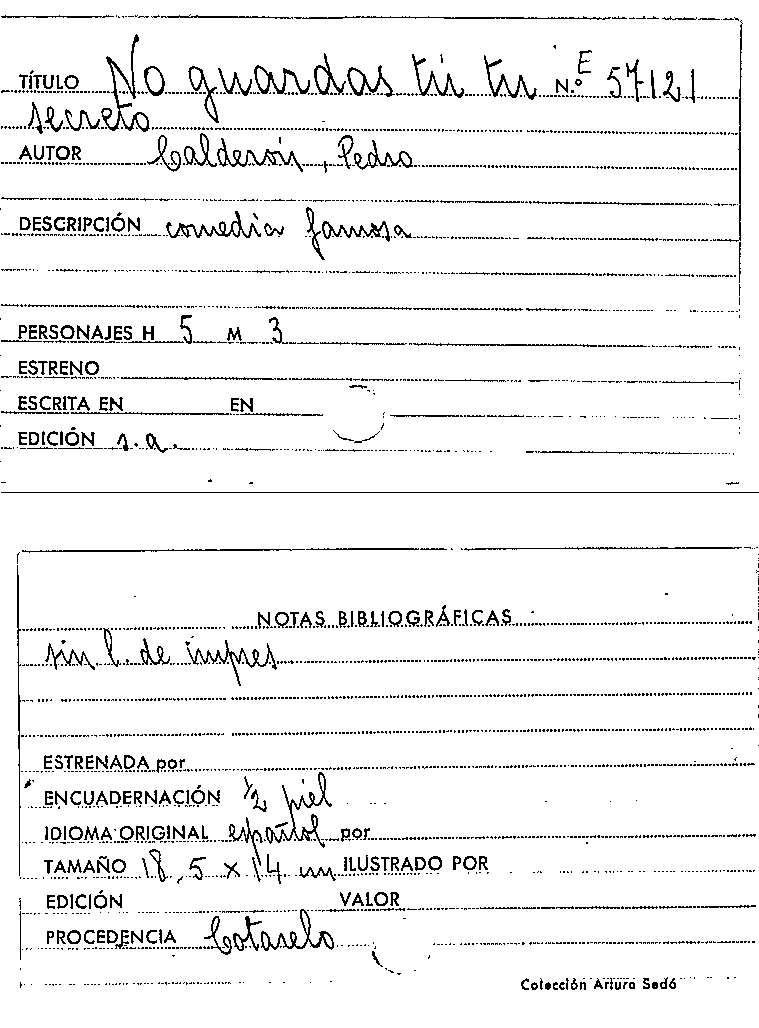 TÍTULO No guardas tú tu N.º E 57121
secreto
AUTOR Calderón, Pedro
DESCRIPCIÓN comedia famosa
PERSONAJES H 5 M 3
ESTRENO
ESCRITA EN EN
EDICIÓN s.a.
NOTAS BIBLIOGRÁFICAS
sin l. de impres
ESTRENADA por
ENCUADERNACIÓN ½ piel
IDIOMA ORIGINAL español por
TAMAÑO 18,5 x 14 cm ILUSTRADO POR
EDICIÓN VALOR
PROCEDENCIA Cotarelo
Colección Arturo Sedó